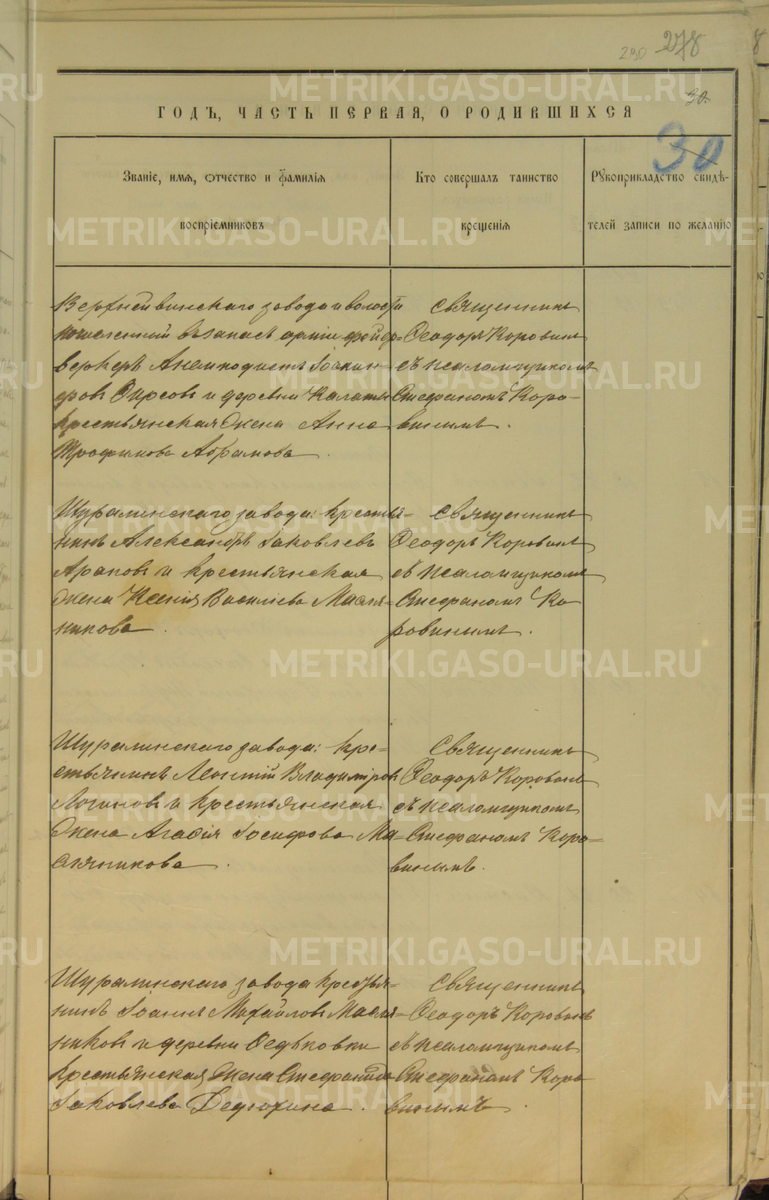 290 278
30.
ГОДЪ, ЧАСТЬ ПЕРВАЯ, О РОДИВШИХСЯ
30
Званіе, имя, отчество и фамилія
воспріемниковъ
Кто совершалъ таинство
крещенія
Рукоприкладство свидѣ-
телей записи по желанію
Верхнейвинскаго завода и волости
въ запасъ арміи фейер-
веркеръ Анемподистъ Іоакин-
фовъ Ѳирсовъ и деревни Калаты
крестьянская жена Анна
Трофимова Абрамова.
Священникъ
Ѳеодоръ Коровинъ
съ псаломщикомъ
Стефаномъ Коро-
винымъ.
Шуралинскаго завода: крестья-
нинъ Александръ Іаковлевъ
Араповъ и крестьянская
жена Ксенія Васильева Масля-
никова.
Священникъ
Ѳеодоръ Коровинъ
съ псаломщикомъ
Стефаномъ Ко
ровинымъ.
Шуралинскаго завода: кре-
стьянинъ Леонтій Владиміровъ
Логиновъ и крестьянская
жена Агафія Іосифова Ма-
слянникова.
Священникъ
Ѳеодоръ Коровинъ
съ псаломщикомъ
Стефаномъ Коро-
винымъ.
Шуралинскаго завода крестья-
нинъ Іоаннъ Михайловъ Масля-
никовъ и деревни Ѳедьковки
крестьянская жена Стефанида
Іаковлева Дедюхина.
Священникъ
Ѳеодоръ Коровинъ
съ псаломщикомъ
Стефаномъ Коро
винымъ.
METRIKI.GASO-URAL.RU